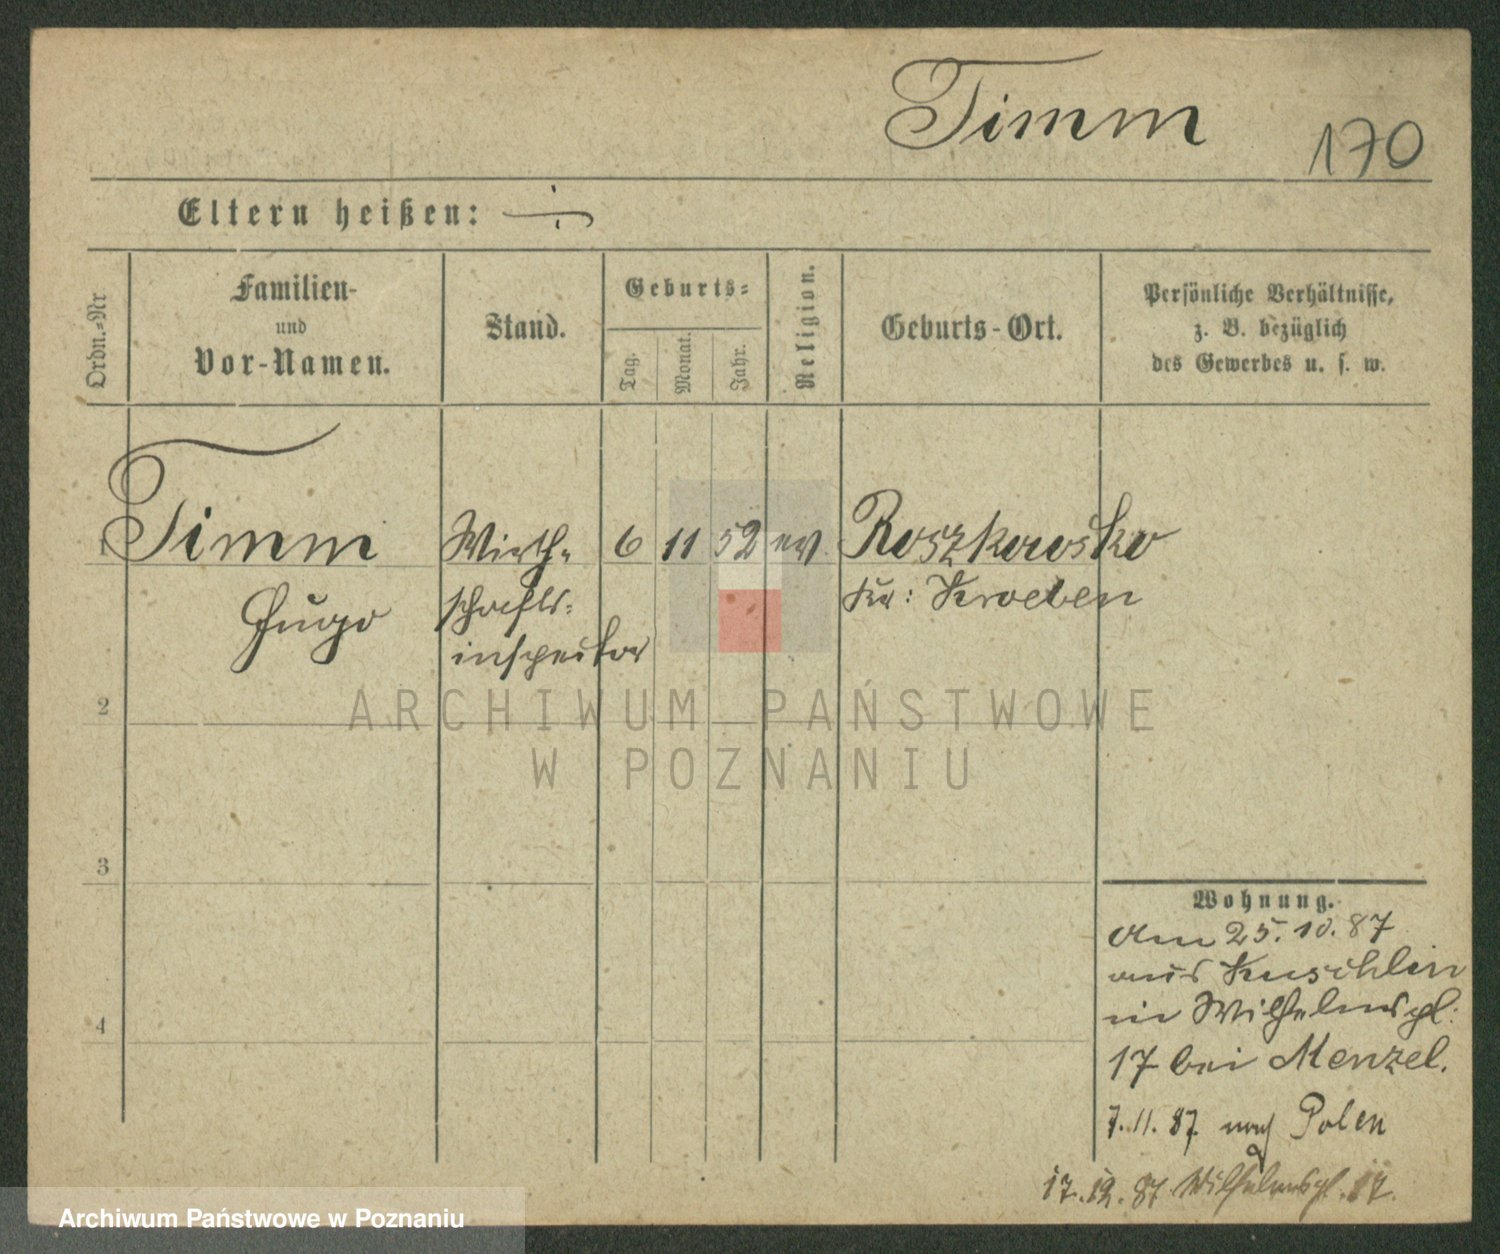 Timm
170
Eltern heißen: ÷
Ordn.=Nr
Familien-
und
Vor-Namen.
Stand.
Geburts=
Tag.
Monat.
Jahr.
Religion.
Geburts-Ort.
Persönliche Verhältnisse,
z. B. bezüglich
des Gewerbes u. s. w.
1 Timm Wirth- 6 11 52 ev Roszkowsko
Hugo schafts- Kr: Kroeben
inspector
2
ARCHIWUM PAŃSTWOWE
W POZNANIU
3
4
Wohnung.
Am 25.10.87
aus Kuschlin
in Wilhelmspl:
17 bei Menzel.
7.11.87 nach Polen
17.12.87 Wilhelmspl. 17.
Archiwum Państwowe w Poznaniu